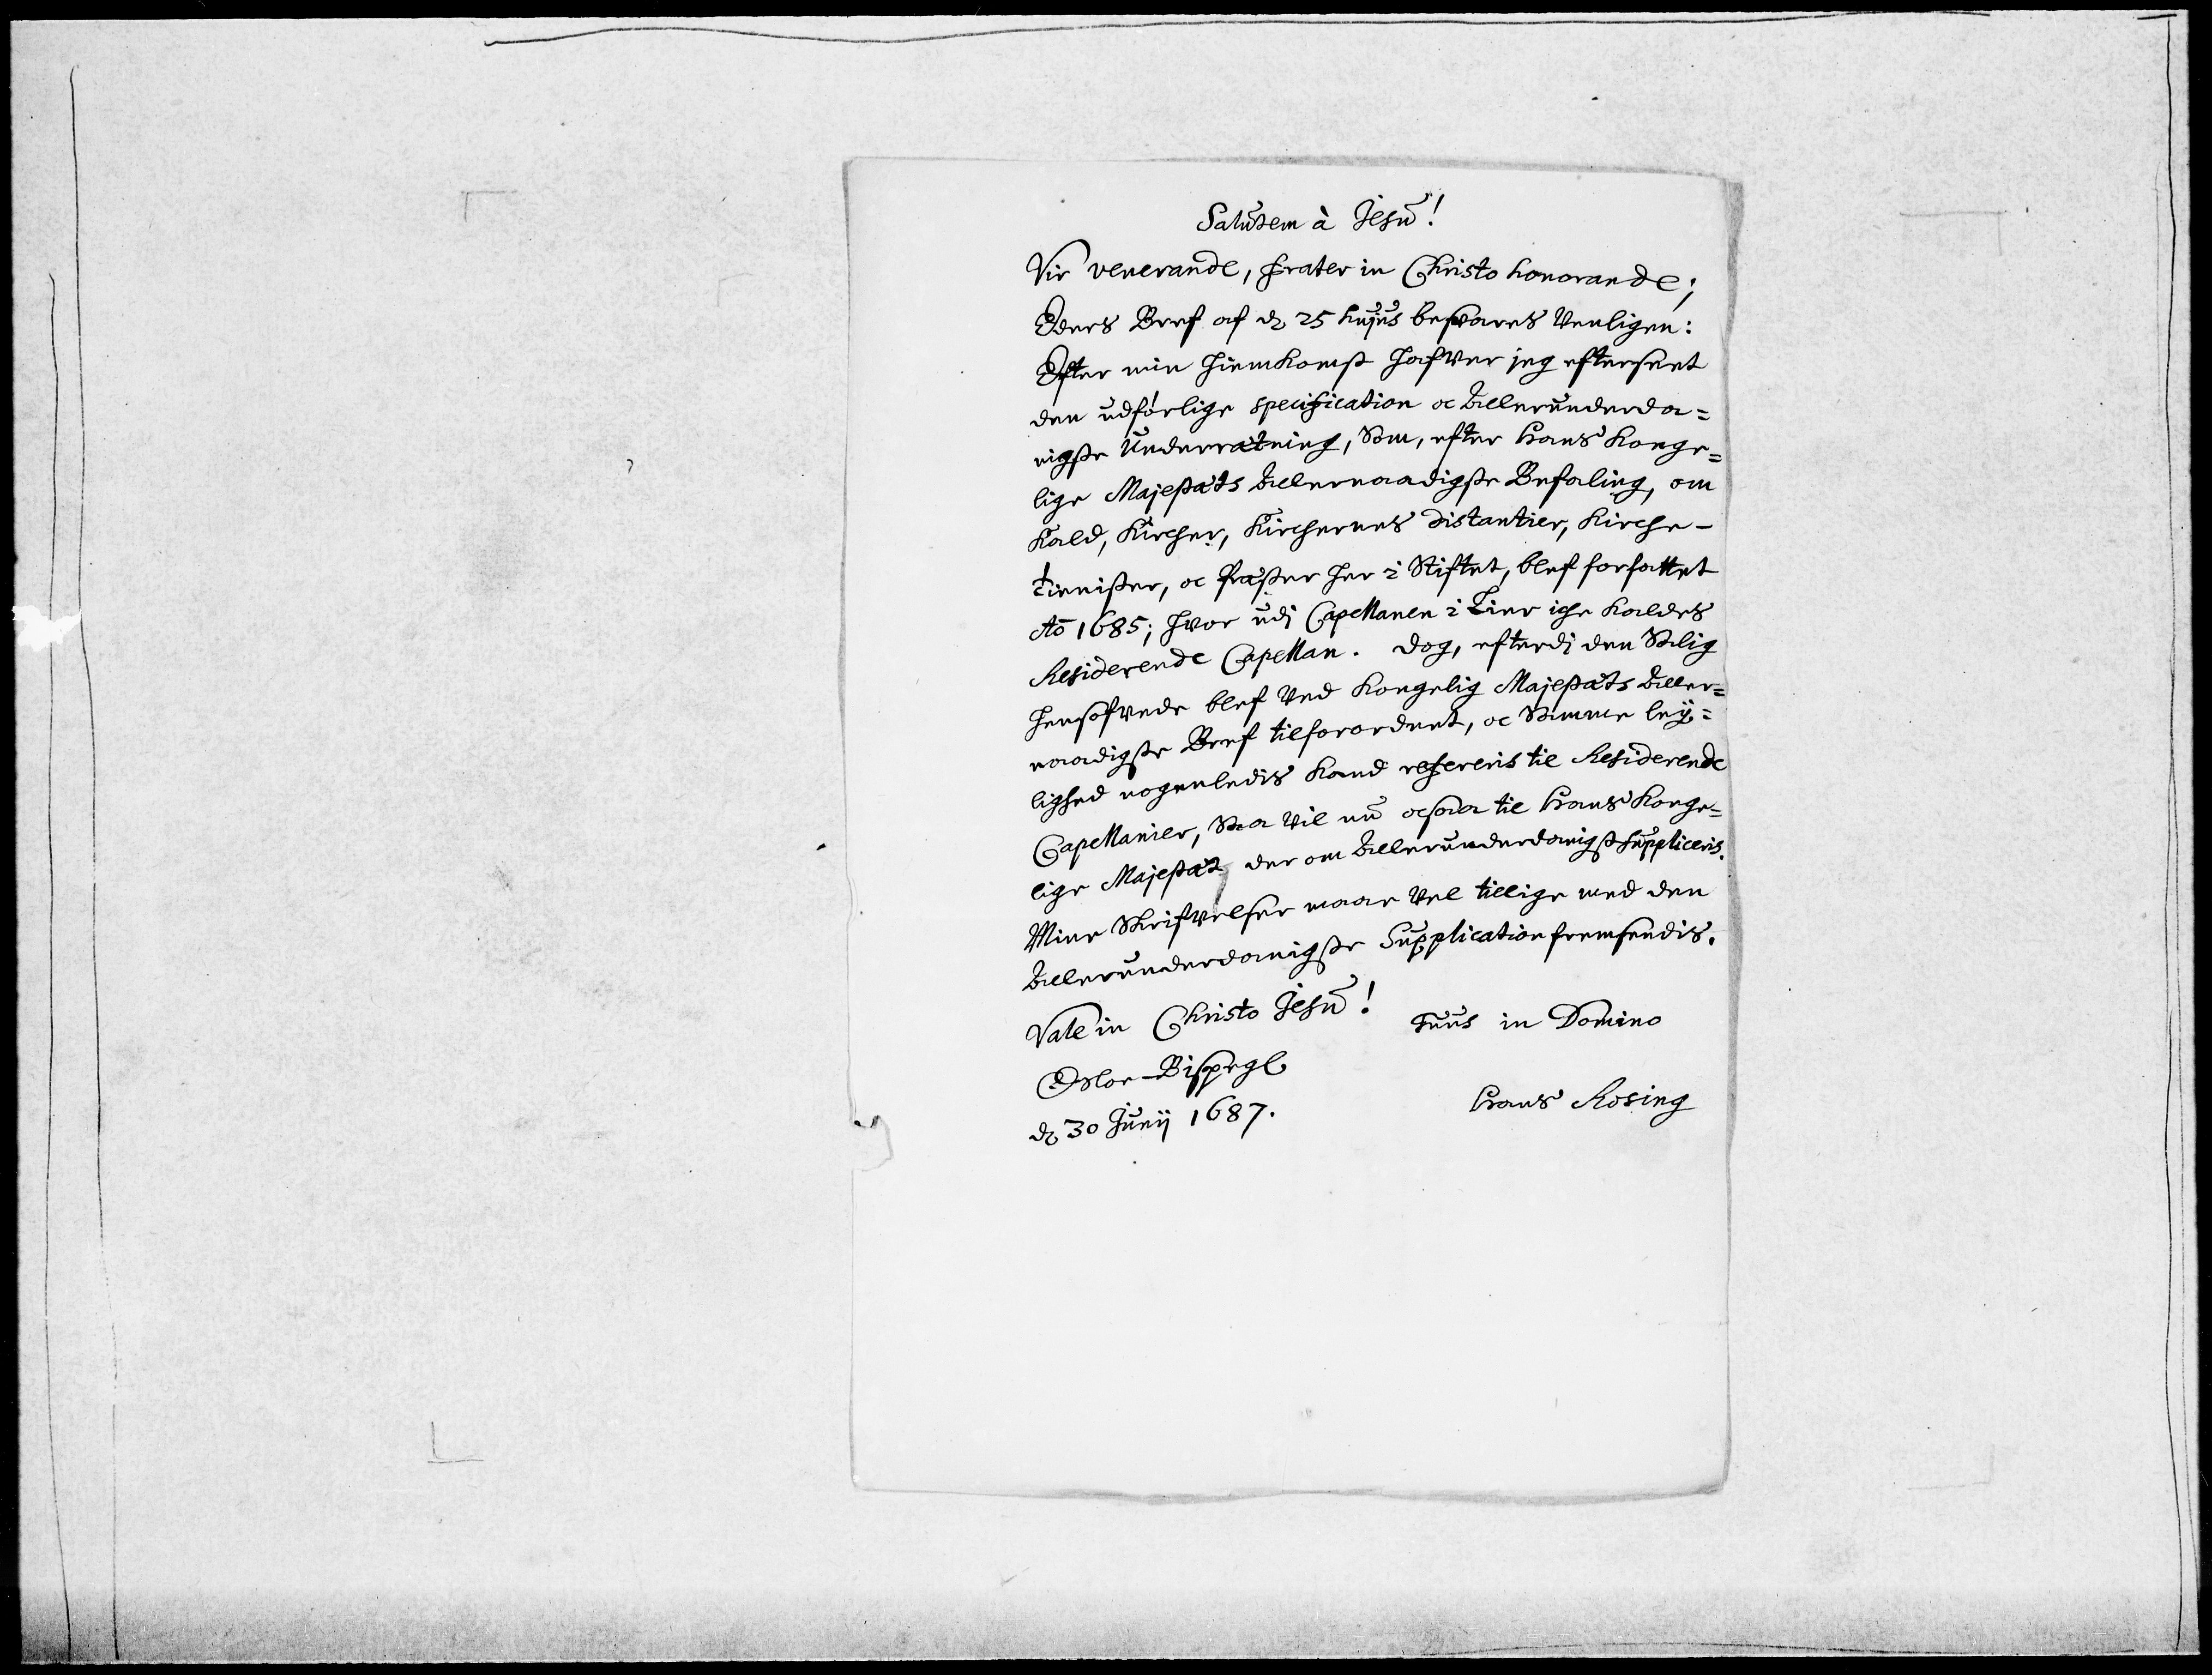 Salutem à Jesu!
Vir venerande, frater in Christo honorande;
Eders Bref af d. 25 hujus besvares Venligen:
Efter min Hiemkomst hafver jeg efterseet
den udførlige specification oc Allerunderda=
nigste Underrætning, Som, efter Hans Konge=
lige Majestæts Allernaadigste Befaling, om
Kald, Kircher, Kirchernes distantier, Kirche-
tienister, oc Præster her i Stiftet, blef forfattet
Aō 1685; hvor udj Capellanen i Lier iche kaldes
Residerende Capellan. Dog, efterdj den Salig
hensofvede blef Ved Kongelig Majestæts Aller=
naadigste Bref tilforordnet, oc Samme ley=
lighed nogenledis kand refereris til Residerende
Capellanier, Saa Vil nu ocsaa til Hans Konge=
lige Majestæt der om Allerunderdanigst Suppliceris.
Mine Skrifvelser maae Vel tillige med den
Allerunderdanigste Supplication fremsendis.
Vale in Christo Jesu!
Tuus in Domino
Opsloe-Bispegl
Hans Rosing
d. 30 Junij 1687.